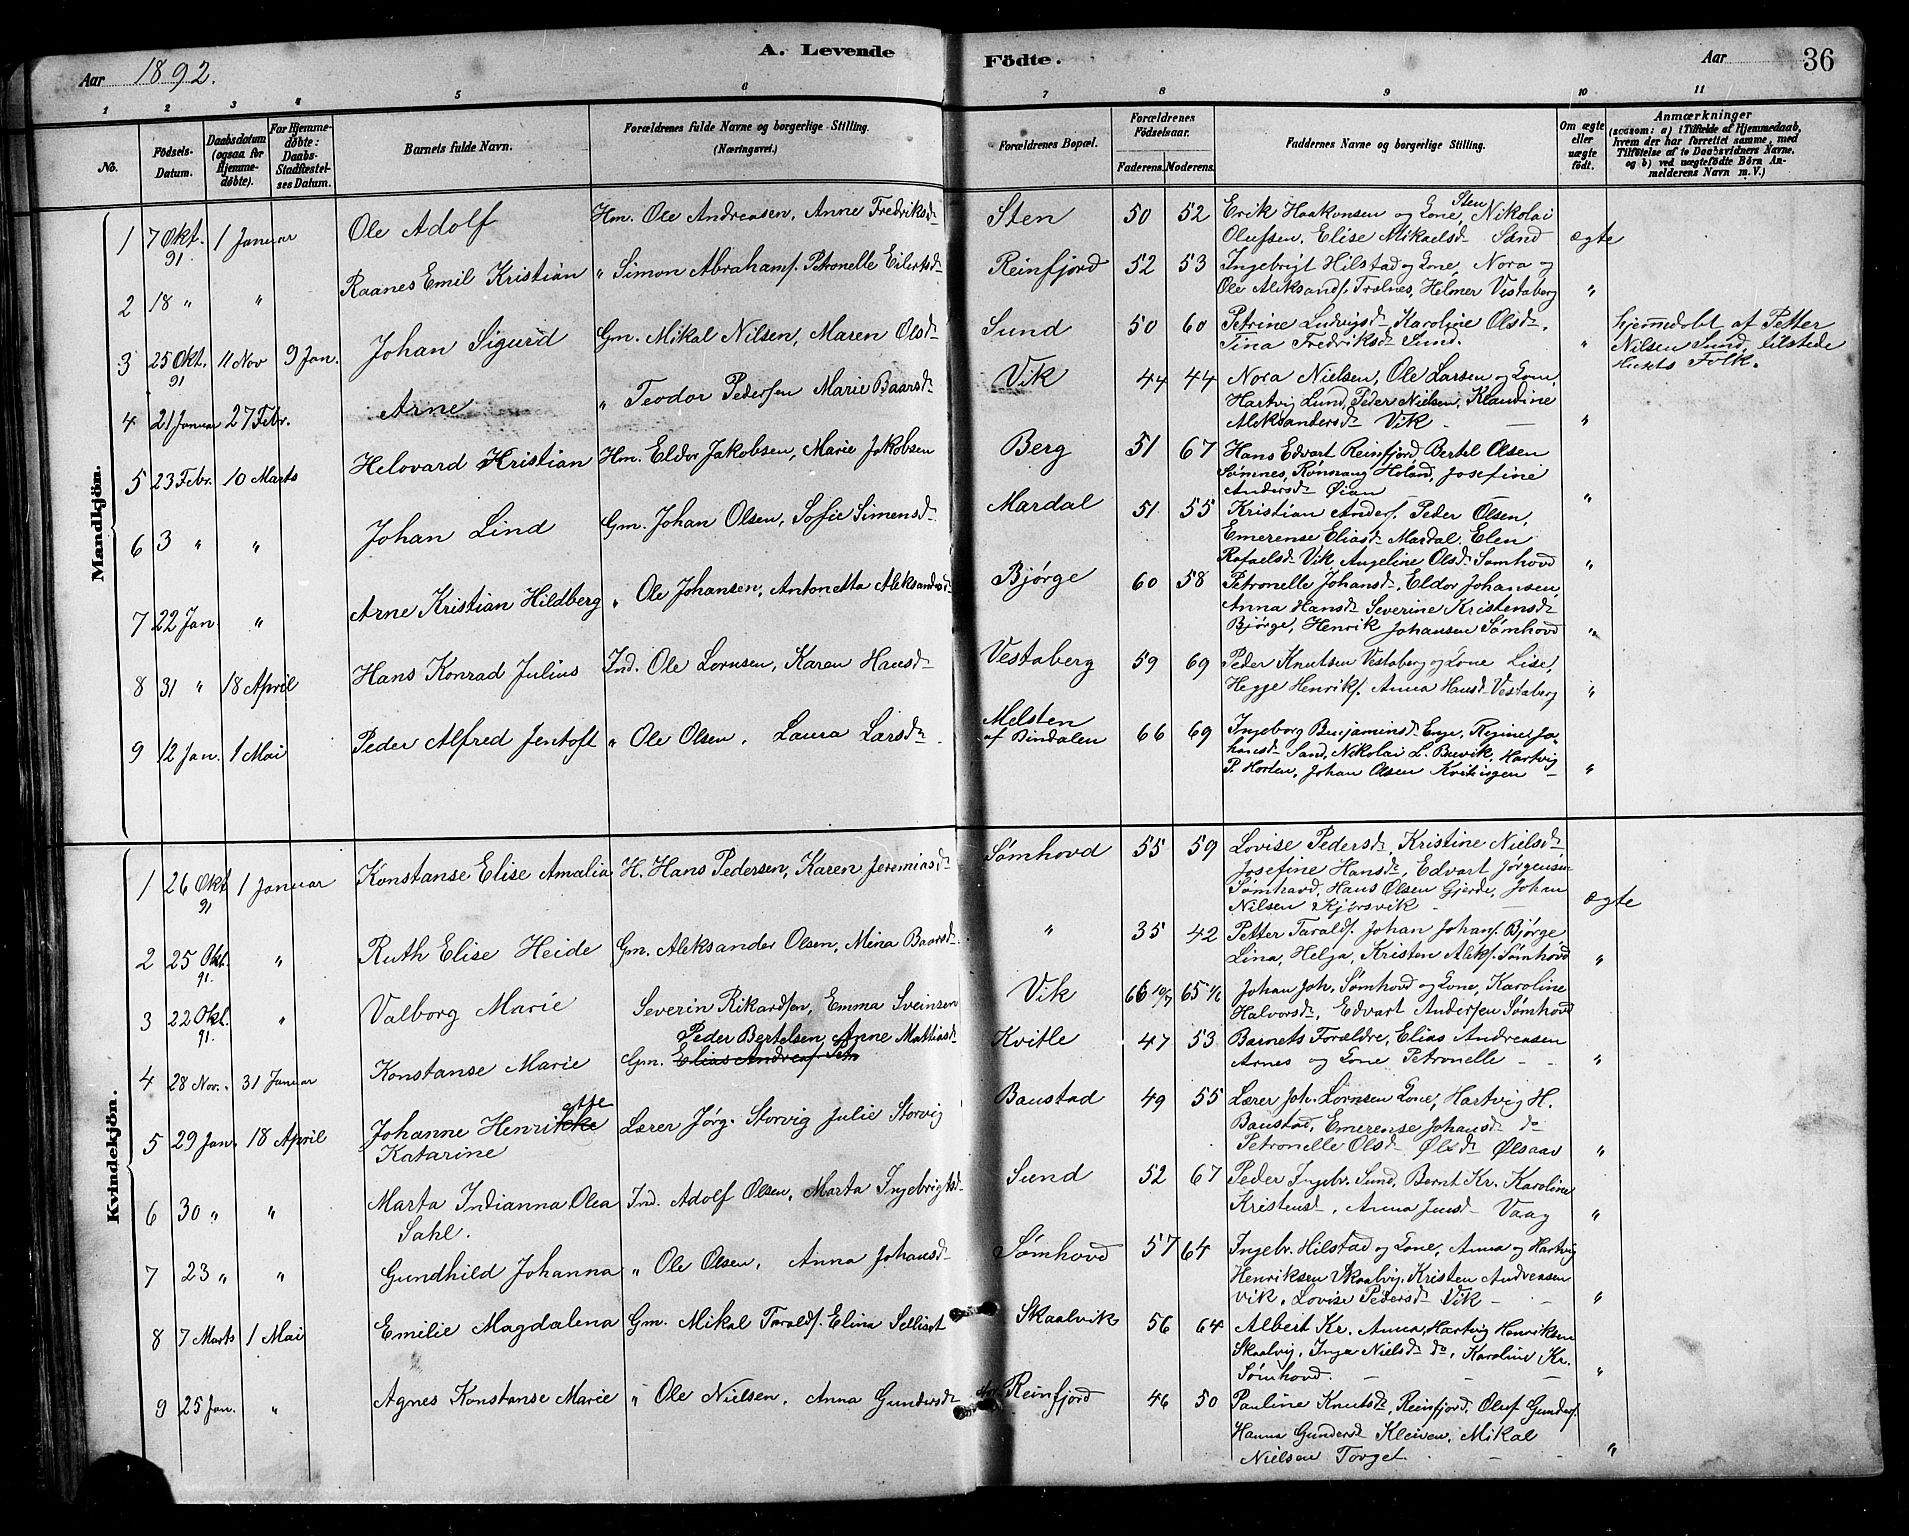 Aar 1892.
A. Levende Födte.
Aar 36
1 2 3 4 5 6 7 8 9 10 11
No.
Födsels-Datum.
Daabsdatum (ogsaa for Hjemme-døbte).
For Hjemme-døbte: Daabs-Stadfæstel-ses Datum.
Barnets fulde Navn.
Forældrenes fulde Navne og borgerlige Stilling. (Næringsvei.)
Forældrenes Bopæl.
Forældrenes Födselsaar.
Faderens. Moderens.
Faddernes Navne og borgerlige Stilling.
Om ægte eller uægte født.
Anmærkninger
(saasom: a) i Tilfælde af Hjemmedaab, hvem der har forrettet samme, med Tilføielse af to Daabsvidners Navne, og b) ved uægtefödte Börn An-melderens Navn m. V.)
Mandkjön.
1 7 Okt. 91 1 Januar Ole Adolf Hm. Ole Andreasen, Anne Fredriksd. Sten 50 52 Erik Haakonsen og Kone, Sten Nikolai
Olufsen, Elise Mikaelsd. Sand ægte
2 18 " " Raanes Emil Kristian " Simon Abrahams. Petronelle Eilertsd. Reinfjord 52 53 Ingebrigt Hilstad og Kone, Nora og
Ole Aleksands. Trælnes, Helmer Vestaberg "
3 25 Okt. 91 11 Nov 9 Jan. Johan Sigurd Gm. Mikal Nilsen, Maren Olsd. Sund 50 60 Petrine Ludvigsd. Karoline Olsd.
Tina Fredriksd. Sund. " hjemmedøbt af Petter
Nilsen Sund, tilstede
Husets Folk.
4 21 Januar 27 Febr. Arne " Teodor Pedersen Marie Baarsd. Vik 44 44 Nora Nielsen, Ole Larsen og Kone,
Hartvig Lund, Peder Nielsen, Klaudine
Aleksandersd. Vik. "
5 23 Febr. 10 Marts Helovard Kristian Hm. Eldor Jakobsen, Marie Jakobsen Berg 51 67 Hans Edvart Reinfjord Bertel Olsen
Sømnes, Rønnaug Holand, Josefine
Andersd. Øian "
6 3 " " Johan Lind Gm. Johan Olsen, Sofie Simensd. Mardal 51 55 Kristian Anders. Peder Olsen,
Emerense Eliasd. Mardal. Elen
Rafaelsd. Vik Angeline Olsd. Sømhovd "
7 22 Jan " Arne Kristian Hildberg " Ole Johansen, Antonetta Aleksandersd. Bjørge 60 58 Petronelle Johansd. Eldor Johansen,
Anna Hansd. Severine Kristensd.
Bjørge, Henrik Johansen Sømhovd "
8 31 " 18 April Hans Konrad Julius Ind. Ole Lornsen, Karen Hansd. Vestaberg 59 69 Peder Knutsen Vestaberg og Kone Lise,
Hegge Henriks. Anna Hansd. Vestaberg "
9 12 Jan. 1 Mai Peder Alfred Jentoft " Ole Olsen. Laura Larsd. Melsten
af Bindalen 66 69 Ingeborg Benjaminsd. Regine Jo-
hansd. Sand, Nikolai L. Buvik, Hartvig
P. Horten, Johan Olsen "
Kvindekjön.
1 26 Okt 91 1 Januar Konstanse Elise Amalia H. Hans Pedersen, Karen Jeremiasd. Sømhovd 55 59 Lovise Pedersd. Kristine Nielsd.
Josefine Hansd. Edvart Jørgensen
Sømhovd, Hans Olsen Gjerde, Johan
Nilsen Kjørsvik ægte
2 25 Okt. 91. " Ruth Elise Heide Gm. Aleksander Olsen, Mina Baarsd. " 35 42 Petter Taralds. Johan Johans. Bjørge
Lina, Helja, Kristen Aleks. Sømhovd "
3 22 Okt. 91. " Valborg Marie Severin Rikardsen, Emma Sveinsen Vik 66 10/7 65 1/6 Johan Joh. Sømhovd og Kone, Karoline
Halvorsd., Edvart Andersen Sømhovd
4 28 Nov. 31 Januar Konstanse Marie Peder Bertelsen, Anne Mathiasd.
Gm. Elias Andreas. Petr Kvitle 47 53 Barnets Forældre, Elias Andreasen
Arnes og Kone Petronelle "
5 29 Jan. 18 April Johanne Henrikke ette
Katarine Lærer Jørg. Storvig Julie Storvig Baustad 49 55 Lærer Joh. Lornsen Kone, Hartvig H.
Baustad, Emerense Johansd. do
Petronelle Olsd. Olsd. Ølsaav "
6 30 " " Marta Indianna Olea
Sahl. Ind. Adolf Olsen, Marta Ingebrigtsd. Sund 52 67 Peder Ingebr. Sund, Bernt Kr. Karoline
Kristensd., Anna Jensd. Vaag "
7 23 " " Gundhild Johanna " Ole Olsen, Anna Johansd. Sømhovd 57 64 Ingebr. Hilstad og Kone, Anna og Hartvig
Henriksen Skaalvig, Kristen Andreasen
Vik, Lovise Pedersd. Vik "
8 7 Marts 1 Mai Emilie Magdalena Gm. Mikal Taralds. Elina Selliset Skaalvik 56 64 Albert Kr. Anna, Hartvig Henriksen
Skaalvig, Inga Nielsd. do, Karoline Kr.
Sømhovd. "
9 25 Jan. " Agnes Konstanse Marie " Ole Nielsen, Anna Gundersd. Reinfjord 46 50 Pauline Knutsd. Reinfjord, Oluf Gunders.
Hanna Gundersd. Kleiven, Mikal
Nielsen Torget. "